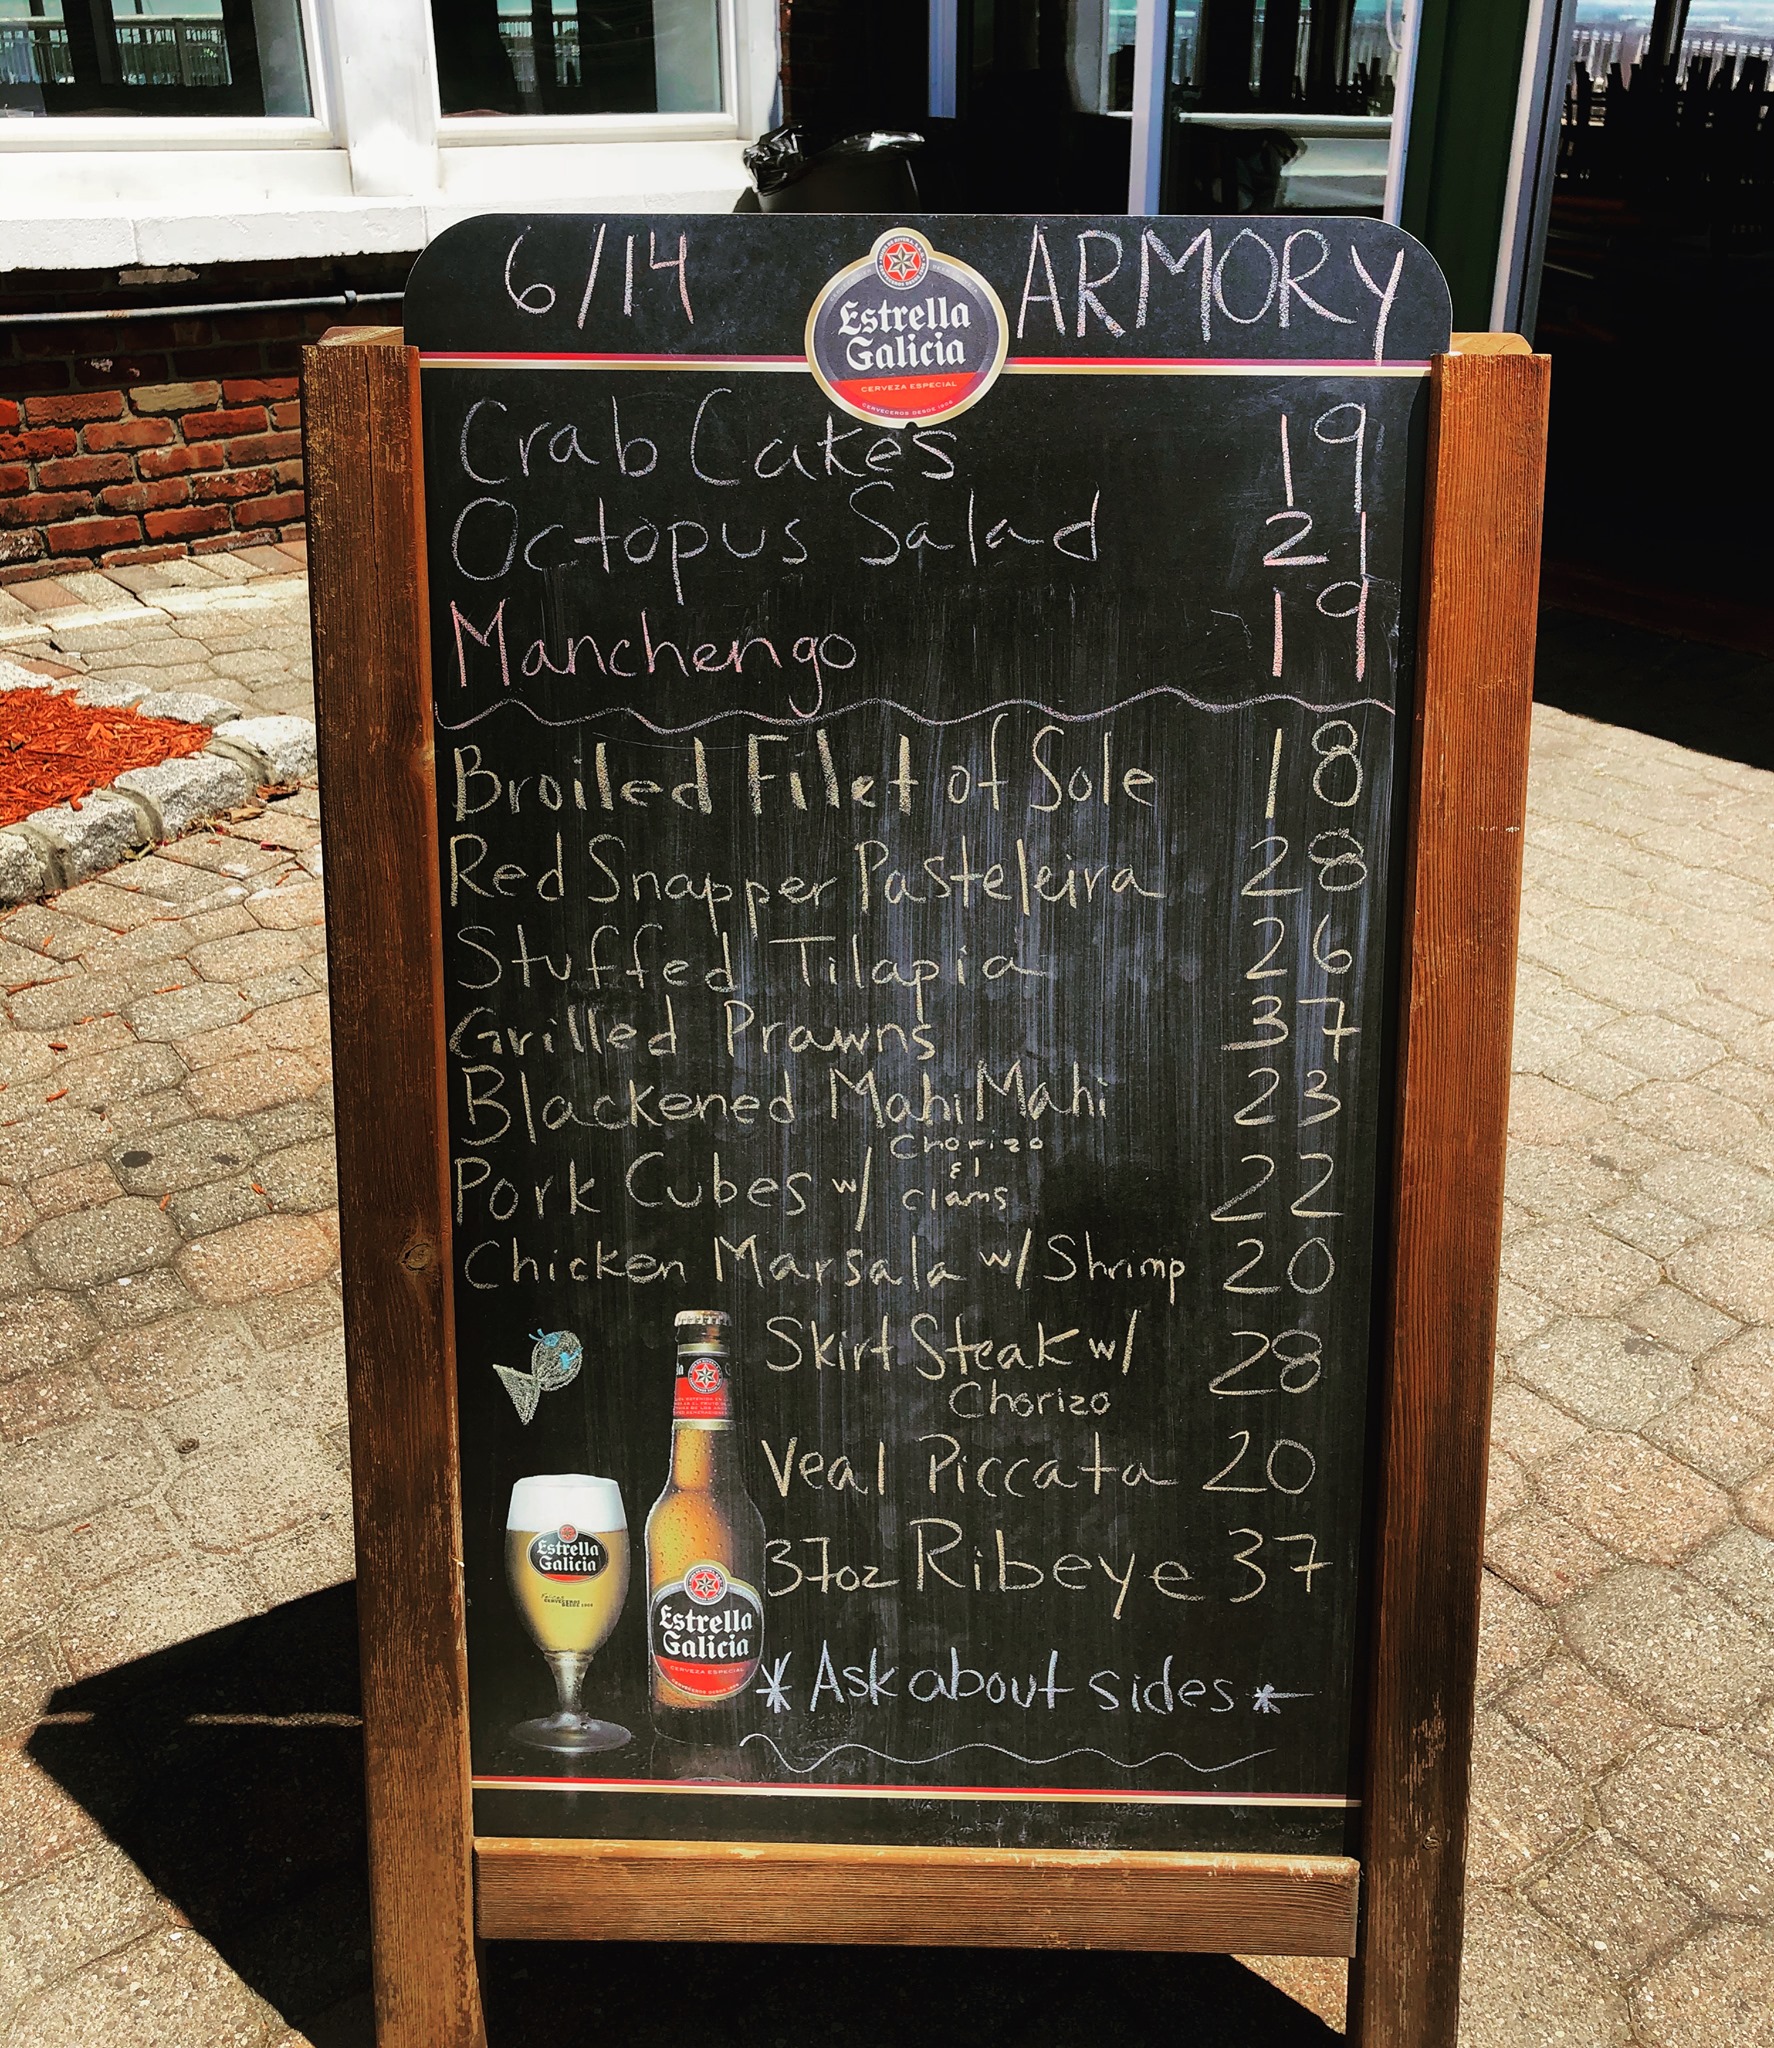 6/14 ARMORY
Estrella
Galicia
CERVEZA ESPECIAL
CERVECEROS DESDE 1906
Crab Cakes 19
Octopus Salad 21
Manchengo 19
Broiled Filet of Sole 18
Red Snapper Pasteleira 28
Stuffed Tilapia 26
Grilled Prawns 37
Blackened Mahi Mahi 23
Pork Cubes w/ Chorizo & Clams 22
Chicken Marsala w/ Shrimp 20
Skirt Steak w/ 28
Chorizo
Veal Piccata 20
37oz Ribeye 37
*Ask about sides*
Estrella
Galicia
CERVECEROS
DESDE 1906
Estrella
Galicia
CERVEZA ESPECIAL